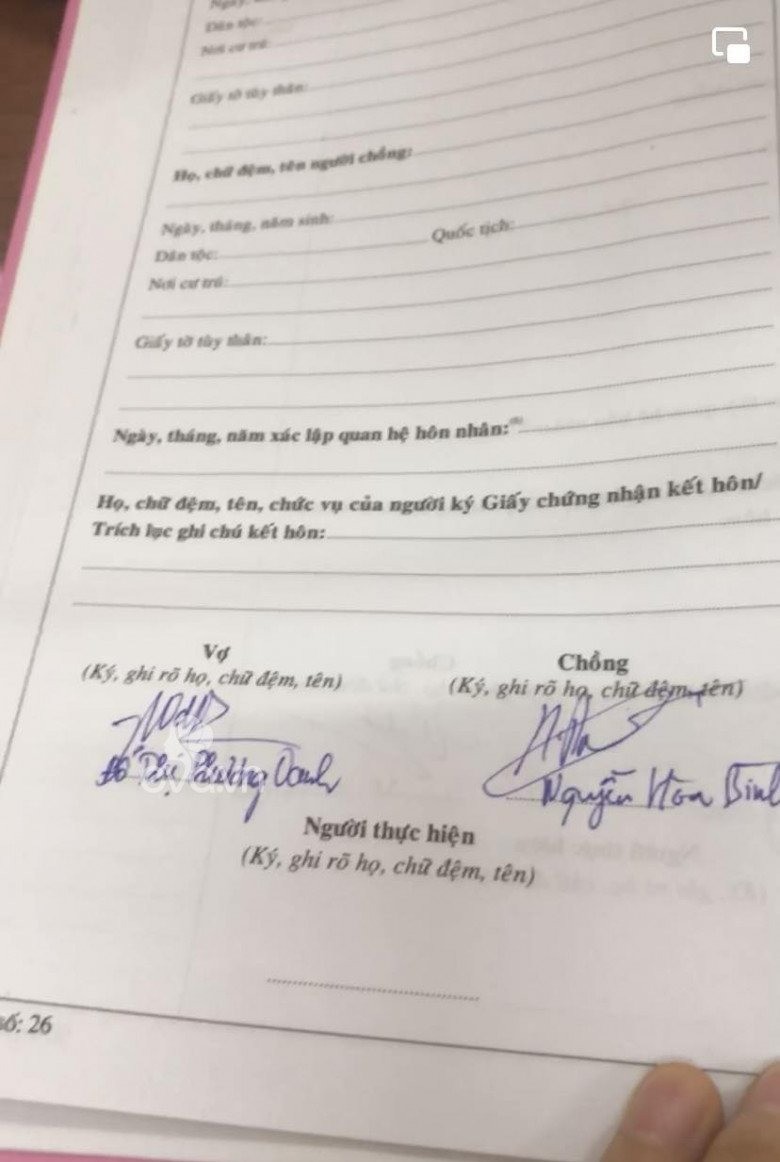 Ngày,
Dân tộc:
Nơi cư trú:
Giấy tờ tùy thân:
Họ, chữ đệm, tên người chồng:
Ngày, tháng, năm sinh:
Dân tộc: Quốc tịch:
Nơi cư trú:
Giấy tờ tùy thân:
Ngày, tháng, năm xác lập quan hệ hôn nhân:
Họ, chữ đệm, tên, chức vụ của người ký Giấy chứng nhận kết hôn/
Trích lục ghi chú kết hôn:
Vợ Chồng
(Ký, ghi rõ họ, chữ đệm, tên) (Ký, ghi rõ họ, chữ đệm, tên)
Đỗ Thị Phương Oanh Nguyễn Hòa Bình
eva.vn
Người thực hiện
(Ký, ghi rõ họ, chữ đệm, tên)
số: 26